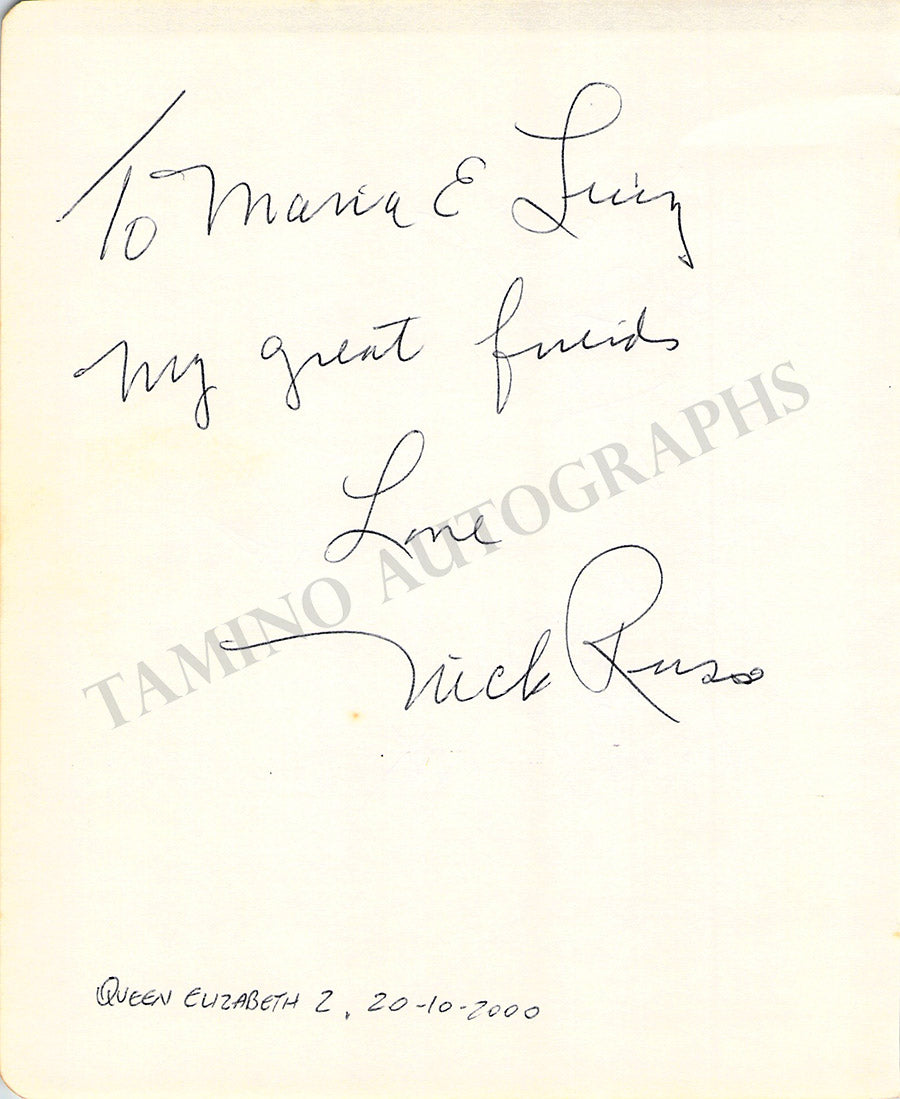 To Maria E Luiz
My great frieids
Love
Nick Russo
TAMINO AUTOGRAPHS
QUEEN ELIZABETH 2, 20-10-2000